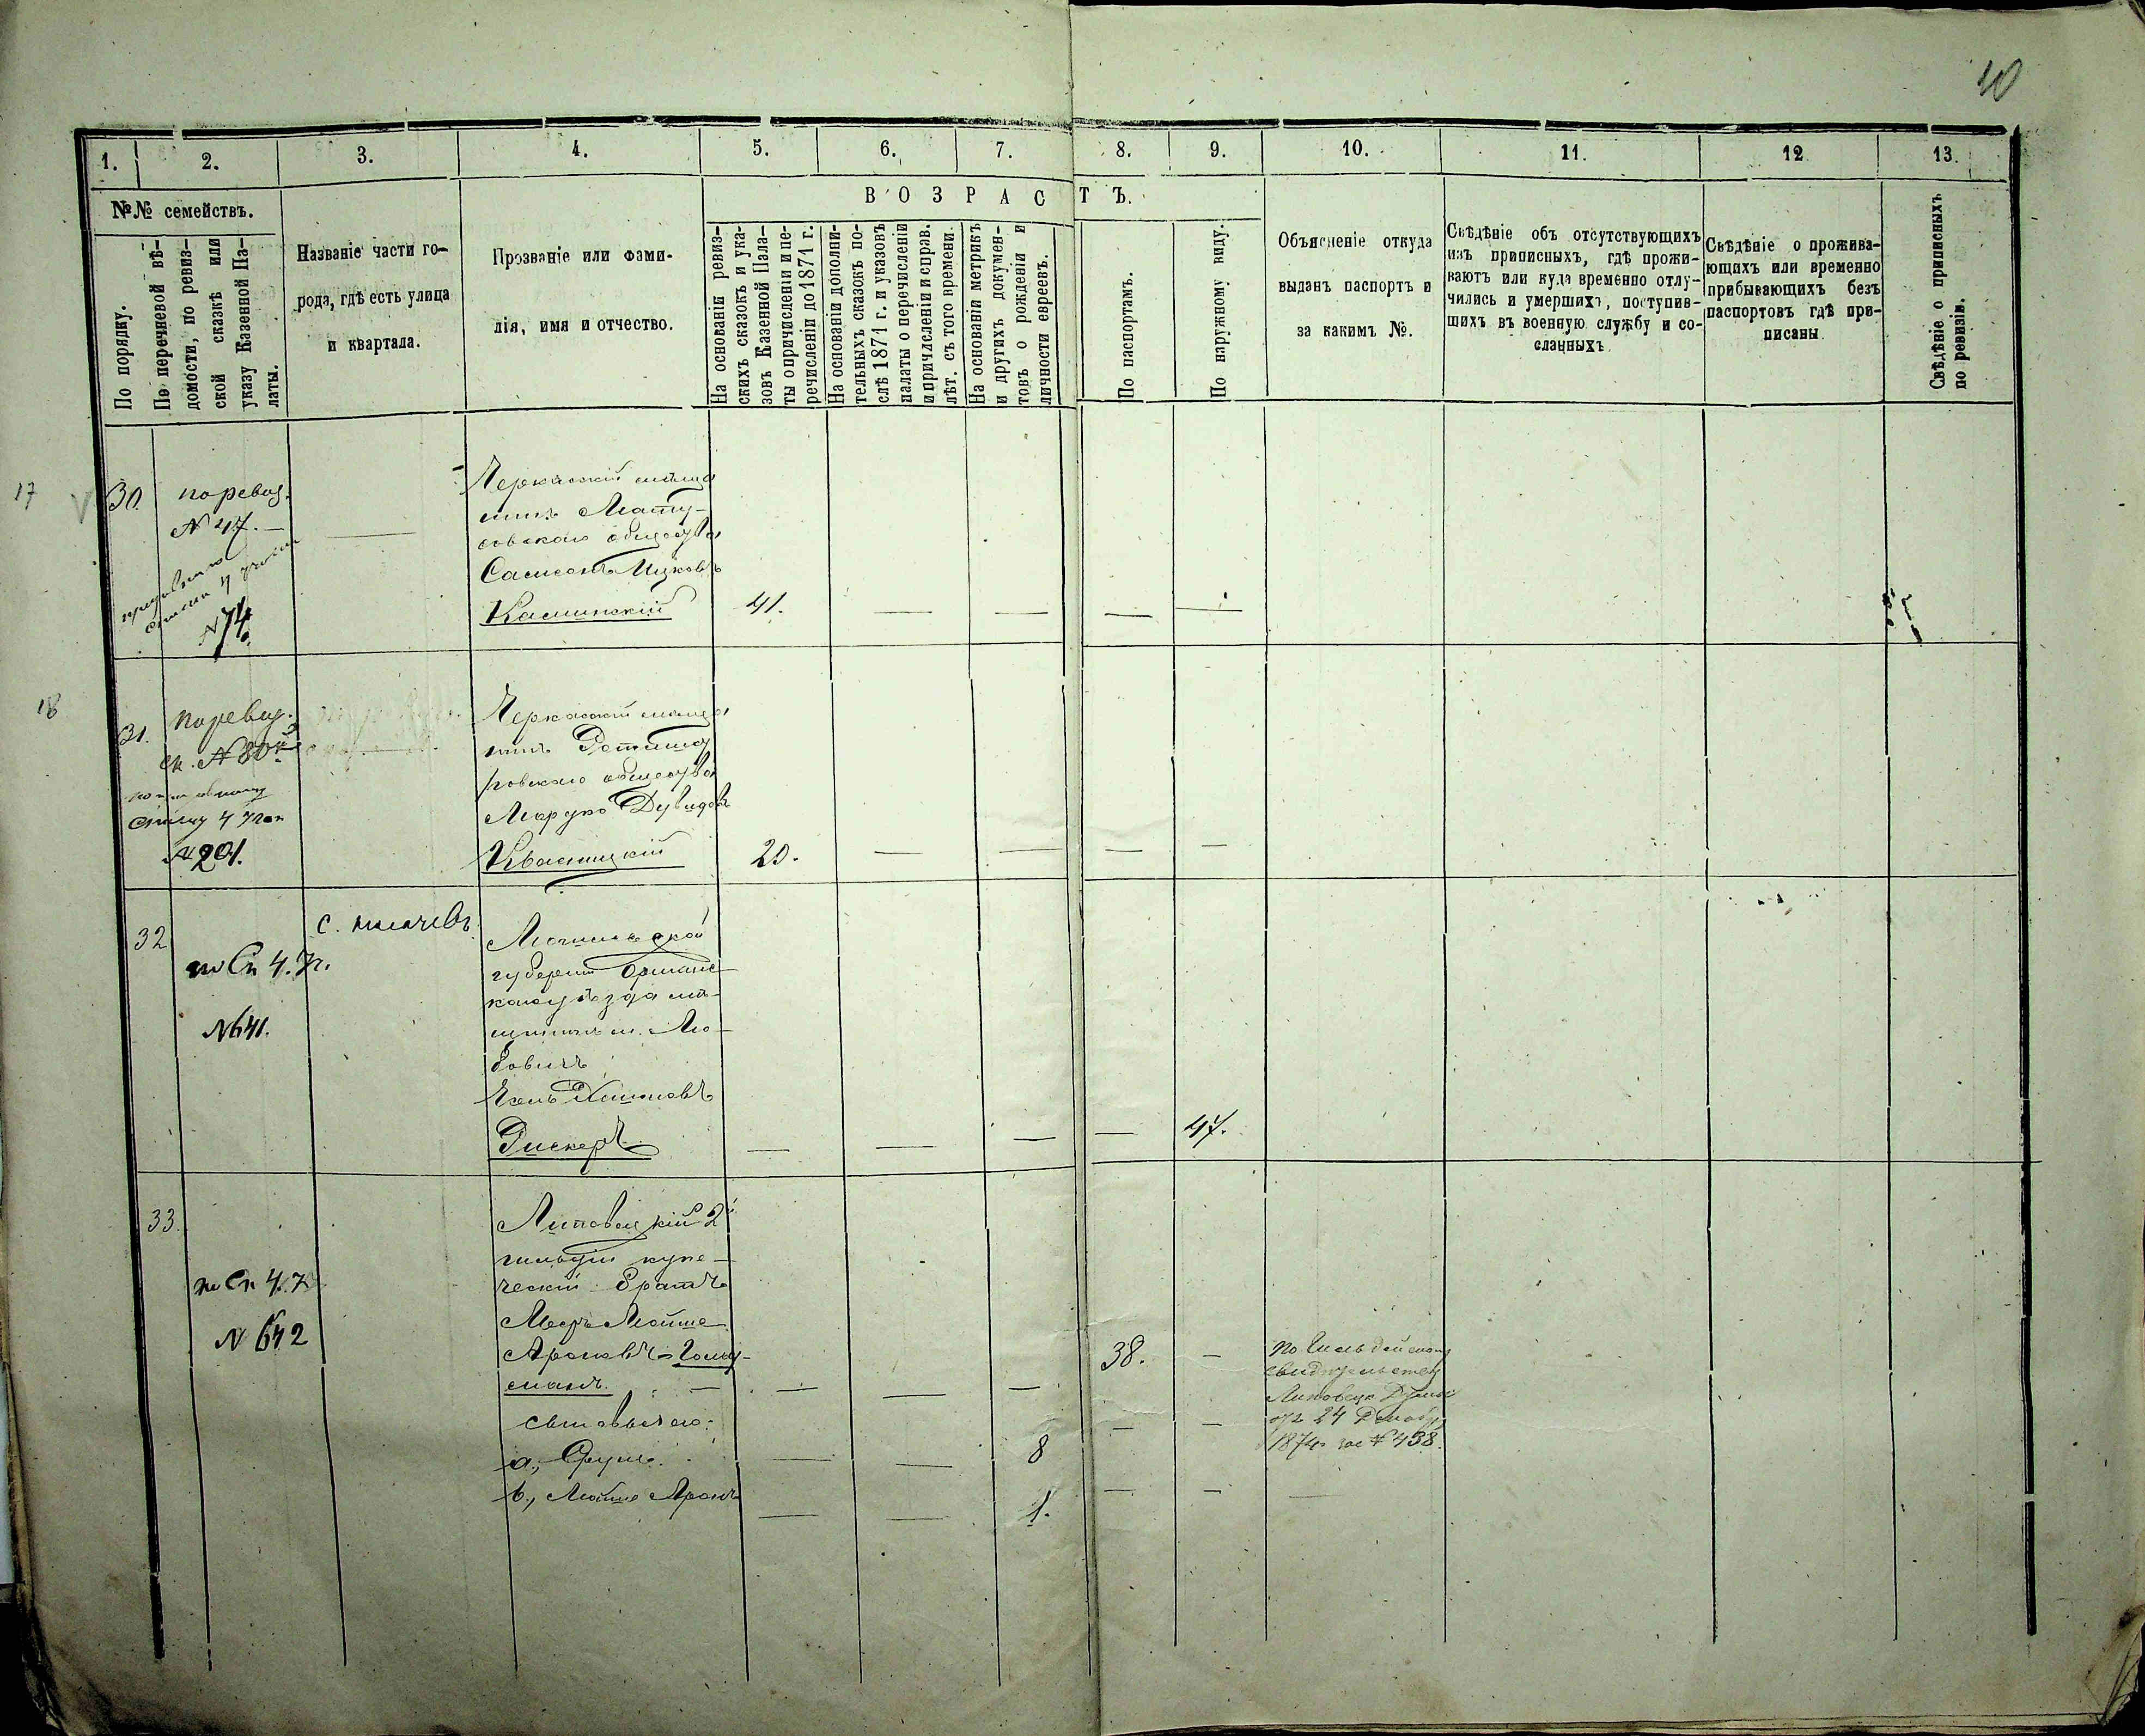 10
1. 2. 3. 4. 5. 6. 7. 8. 9. 10. 11. 12 13.
№№ семействъ.
По порядку.
По перечневой вѣ-
домости, по ревиз-
ской сказкѣ или
указу Казенной Па-
латы.
Названіе части го-
рода, гдѣ есть улица
и квартала.
Прозваніе или фами-
лія, имя и отчество.
ВОЗРАСТЪ.
На основаніи ревиз-
скихъ сказокъ и ука-
зовъ Казенной Пала-
ты о причисленіи и пе-
речисленіи до 1871 г.
На основаніи дополни-
тельныхъ сказокъ по-
слѣ 1871 г. и указовъ
палаты о перечисленіи
и причисленіи и справ.
лѣт. съ того времени.
На основаніи метрикъ
и другихъ докумен-
товъ о рожденіи и
личности евреевъ.
По паспортамъ.
По наружному виду.
Объясненіе откуда
выданъ паспортъ и
за какимъ №.
Свѣдѣніе объ отсутствующихъ
изъ приписныхъ, гдѣ прожи-
ваютъ или куда временно отлу-
чились и умершихъ, поступив-
шихъ въ военную службу и со-
сланныхъ
Свѣдѣніе о прожива-
ющихъ или временно
прибывающихъ безъ
паспортовъ гдѣ при-
писаны.
Свѣдѣніе о приписныхъ
по ревизіи.
17
30.
поревиз.
№ 47. —
№ 74.
Черкасскій мѣща
нинъ Мату-
совскаго общества
Самсонъ Ицковъ
Каминскій
41. — — — —
18
31.
поревиз.
ск. № 80
списку 4 уч.
№ 201.
Черкасскій мѣща
нинъ
ровскаго общества
Мордко Дувидовъ
Квасницкій
20. — — — —
32
по Сп 4. уч.
№ 641.
Могилевской
губерніи Оршанс-
каго уѣзда мѣ-
щанинъ м. Лю-
бовичъ
Рискеръ
— — — — 47.
33.
по Сп 4. у
№ 642
Липовецкій 2й
гильдіи купе-
ческій братъ
Мееръ Мойше
Ароновъ Гольд-
манъ. — — — —
38. —
По Гильдейскому
свидѣтельству
Липовецк. Думы
отъ 24 Декабр
1874 за № 438.
сыновья его:
а., Фроимъ. — — 8 — —
b., Мойше Аронъ — — 1. — — —